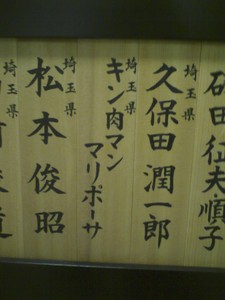 征夫
順子
埼玉県
久保田潤一郎
埼玉県
キン肉マン
マリポーサ
埼玉県
松本俊昭
埼玉県